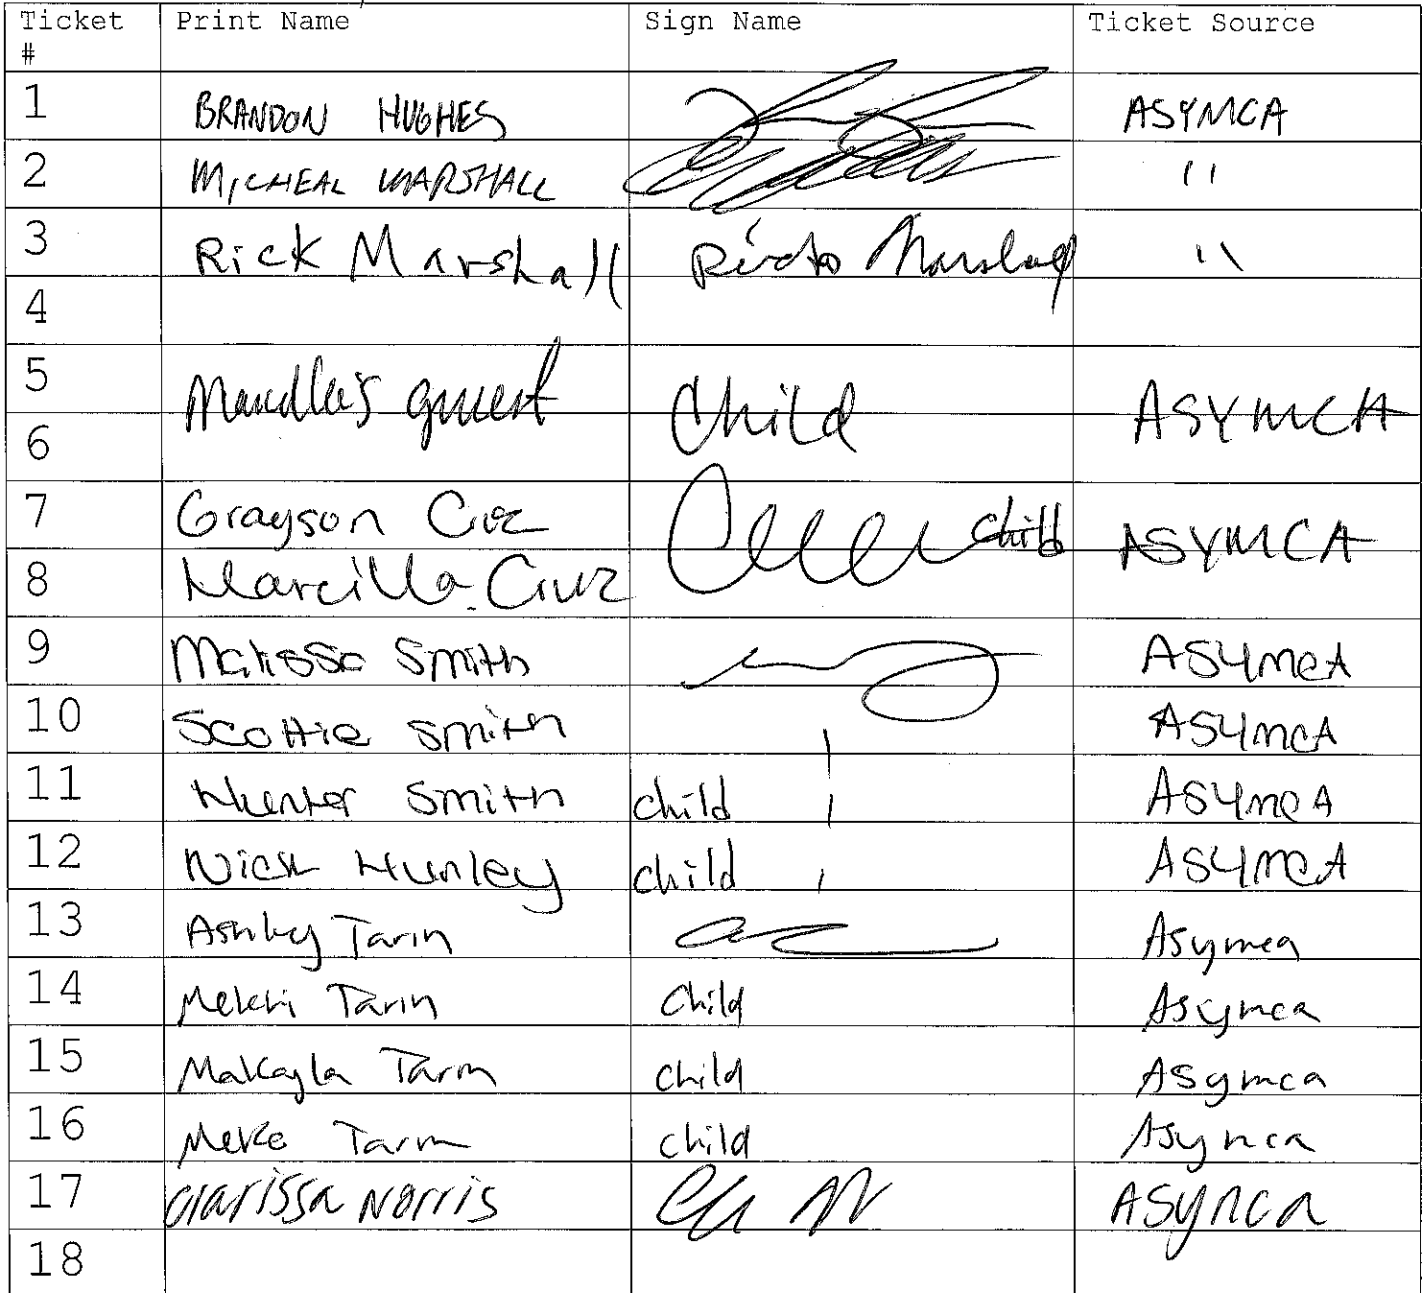 Ticket # Print Name Sign Name Ticket Source
1 BRANDON HUGHES ASYMCA
2 MICHEAL MARSHALL 11
3 Rick Marshall Marshall 11
4
5 guest Child ASYMCA
6
7 Grayson Cruz child ASYMCA
8 Marcilla Cruz
9 Melissa Smith ASYMCA
10 Scottie Smith ASYMCA
11 Hunter Smith child ASYMCA
12 Nick Hunley child ASYMCA
13 Ashley Tarin Asymca
14 Mekhi Tarin Child Asymca
15 Makayla Tarin child Asymca
16 Meke Tarin child Asymca
17 Clarissa Norris ASymca
18